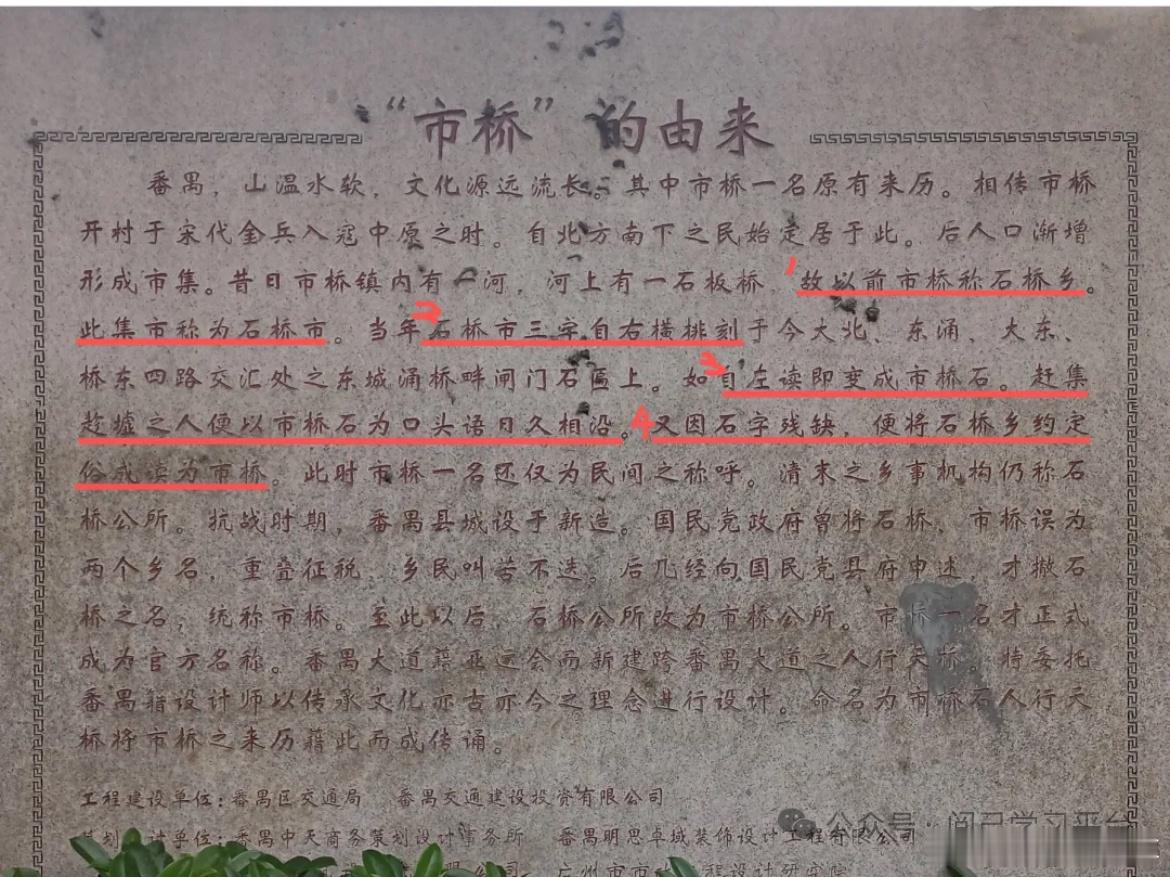 “市桥”的由来
番禺，山温水软，文化源远流长。其中市桥一名原有来历。相传市桥
开村于宋代金兵入寇中原之时。自北方南下之民始定居于此。后人口渐增
形成市集。昔日市桥镇内有一河，河上有一石板桥 1 故以前市桥称石桥乡。
此集市称为石桥市。当年 2 石桥市三字自右横排刻于今大北、东涌、大东、
桥东四路交汇处之东城涌桥畔闸门石匾上。如 3 自左读即变成市桥石。赶集
趁墟之人便以市桥石为口头语日久相沿。4 又因石字残缺，便将石桥乡约定
俗成读为市桥。此时市桥一名还仅为民间之称呼。清末之乡事机构仍称石
桥公所。抗战时期，番禺县城设于新造。国民党政府曾将石桥，市桥误为
两个乡名，重叠征税 乡民叫苦不迭。后几经向国民党县府申述，才撤石
桥之名，统称市桥。至此以后，石桥公所改为市桥公所。市桥一名才正式
成为官方名称。番禺大道藉亚运会而新建跨番禺大道之人行天桥。特委托
番禺籍设计师以传承文化亦古亦今之理念进行设计。命名为市桥石人行天
桥将市桥之来历藉此而成传诵。
工程建设单位：番禺区交通局 番禺交通建设投资有限公司
策划 计单位：番禺中天商务策划设计事务所 番禺明思卓域装饰设计工程有限公司
限公司 广州市市 工程设计研究院
公众号·阅己学习平台